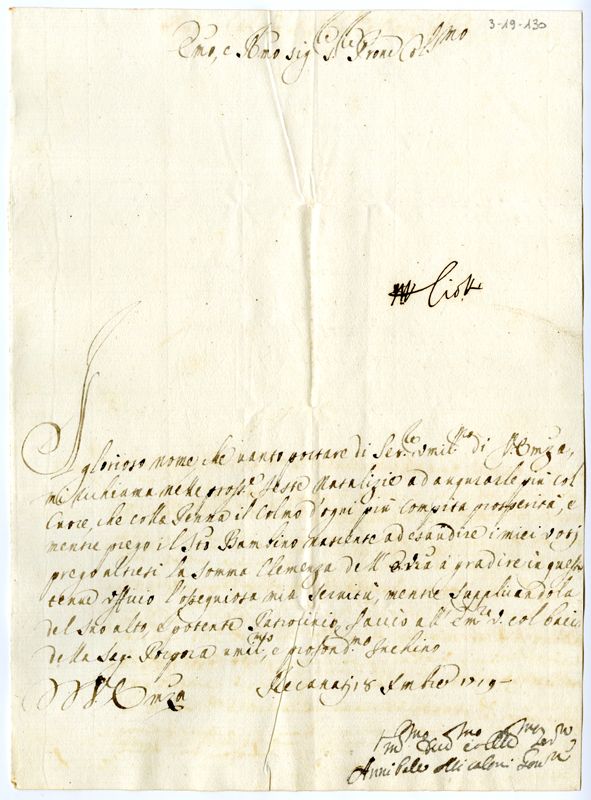 3-19-130
Emo, e Rmo sig.re Sig.re Prone Col.mo
Il glorioso nome che vanto portare di Ser.re umil.mo di V. Emza,
mi richiama nelle pross.e feste Natalizie ad augurarle più col
Cuore, che colla Penna il Colmo d'ogni più compita prosperità, e
mentre prego il S.to Bambino nascente ad esaudire i miei voti
prego altresi la somma Clemenza dell' à gradire in questo
tenue officio l'ossequiosa mia servitù, mentre supplicandola
del suo alto, e potente Patrocinio, faccio all' Em.za V. col bacio
della Sag. Porpora umil.mo, e profond.mo Inchino
V. Emza Recanati 18 Xmbre 1719
Annibale